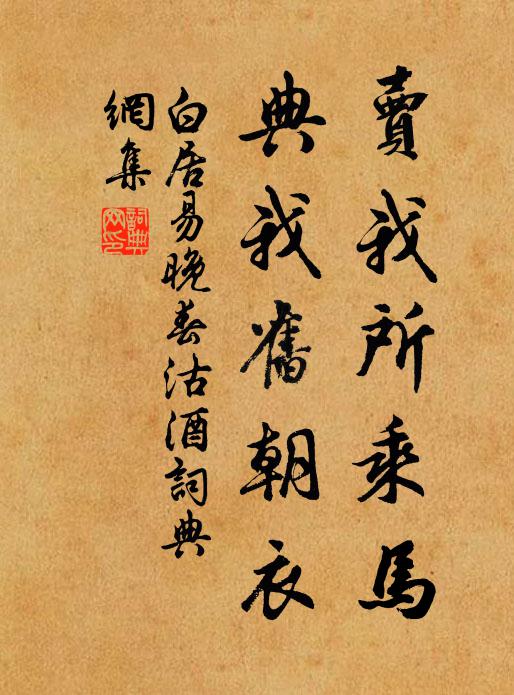 賣我所乘馬
典我舊朝衣
白居易晚春沽酒詞典
網集
詞典
网印